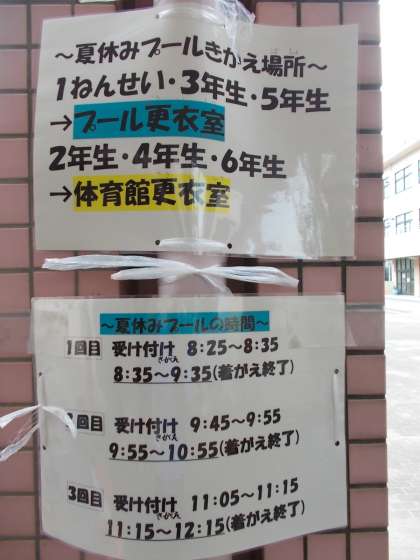 ～夏休みプールきがえ場所～
1ねんせい・3年生・5年生
→プール更衣室
2年生・4年生・6年生
→体育館更衣室
～夏休みプールの時間～
1回目 受け付け 8:25～8:35
きがえ
8:35～9:35(着がえ終了)
回目 受け付け 9:45～9:55
きがえ
9:55～10:55(着がえ終了)
3回目 受け付け 11:05～11:15
きがえ
11:15～12:15(着がえ終了)